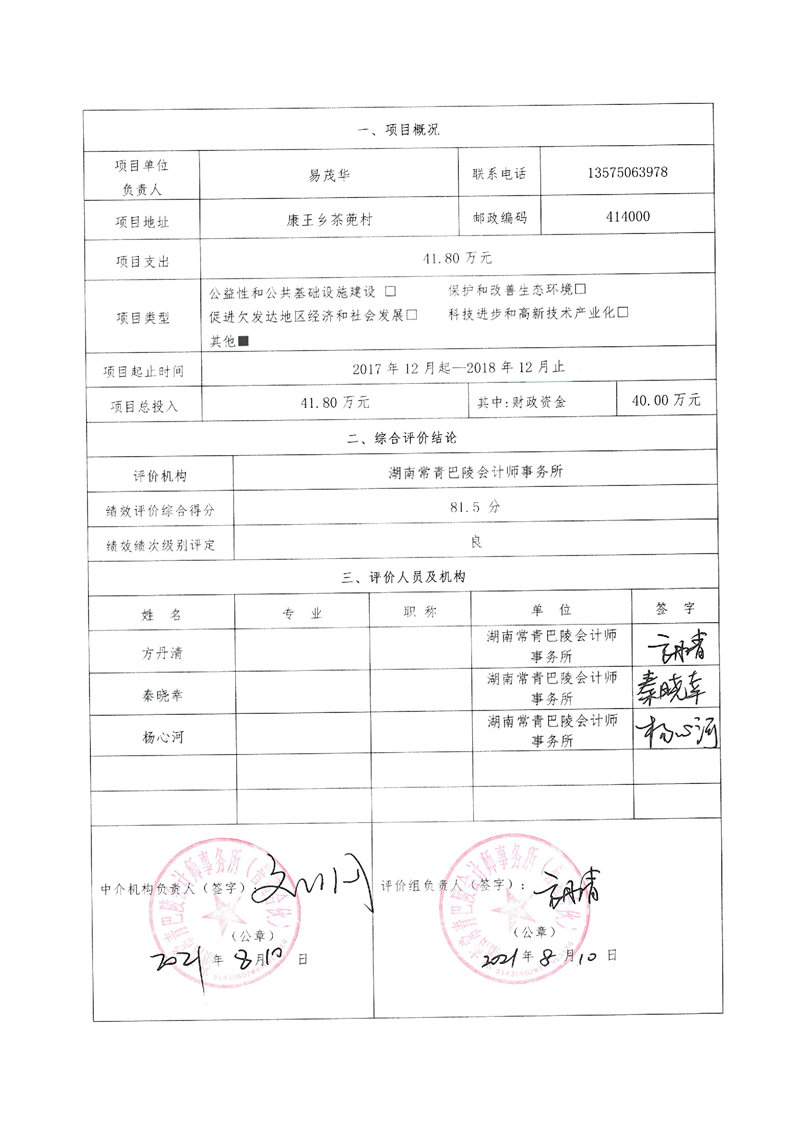 一、项目概况
项目单位
负责人
易茂华
联系电话
13575063978
项目地址
康王乡茶蔸村
邮政编码
414000
项目支出
41.80 万元
项目类型
公益性和公共基础设施建设 □ 保护和改善生态环境□
促进欠发达地区经济和社会发展□ 科技进步和高新技术产业化□
其他■
项目起止时间
2017 年 12 月起—2018 年 12 月止
项目总投入
41.80 万元
其中:财政资金
40.00 万元
二、综合评价结论
评价机构
湖南常青巴陵会计师事务所
绩效评价综合得分
81.5 分
绩效绩次级别评定
良
三、评价人员及机构
姓 名 专 业 职 称 单 位 签 字
方丹清
湖南常青巴陵会计师
事务所
方丹清
秦晓幸
湖南常青巴陵会计师
事务所
秦晓幸
杨心河
湖南常青巴陵会计师
事务所
杨心河
中介机构负责人（签字）
（公章）
2021 年 8 月 10 日
评价组负责人（签字）：方丹清
（公章）
2021 年 8 月 10 日